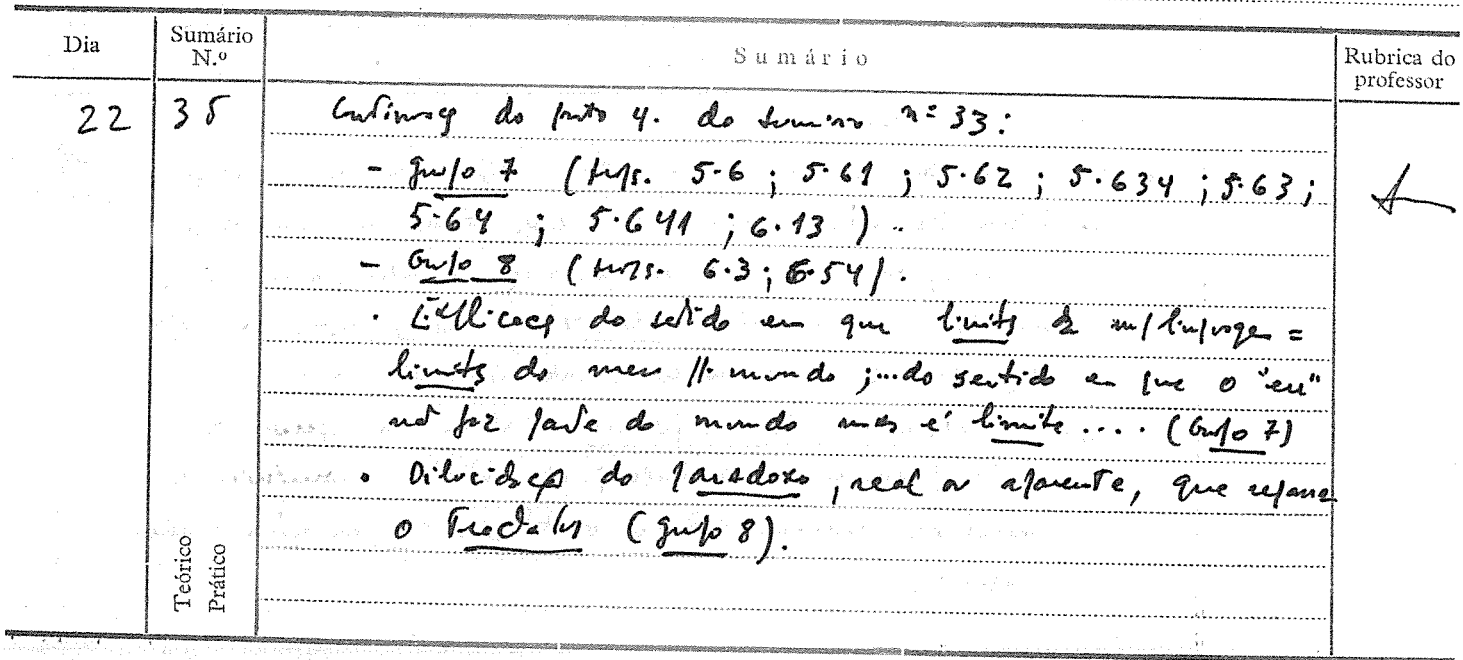 Dia Sumário N.º Sumário Rubrica do professor
22 35 Continuação do ponto 4. do sumário nº 33:
- grupo 7 (props. 5.6 ; 5.61 ; 5.62 ; 5.634 ; 5.63 ;
5.64 ; 5.641 ; 6.13 ) .
- Grupo 8 (props. 6.3 ; 6.54) .
. Explicação do sentido em que limites da m/ linguagem =
limites do meu mundo ;...do sentido em que o "eu"
não faz parte do mundo mas é limite .... (Grupo 7)
. Dilucidação do paradoxo, real ou aparente, que
o Tractatus (grupo 8).
Teórico
Prático